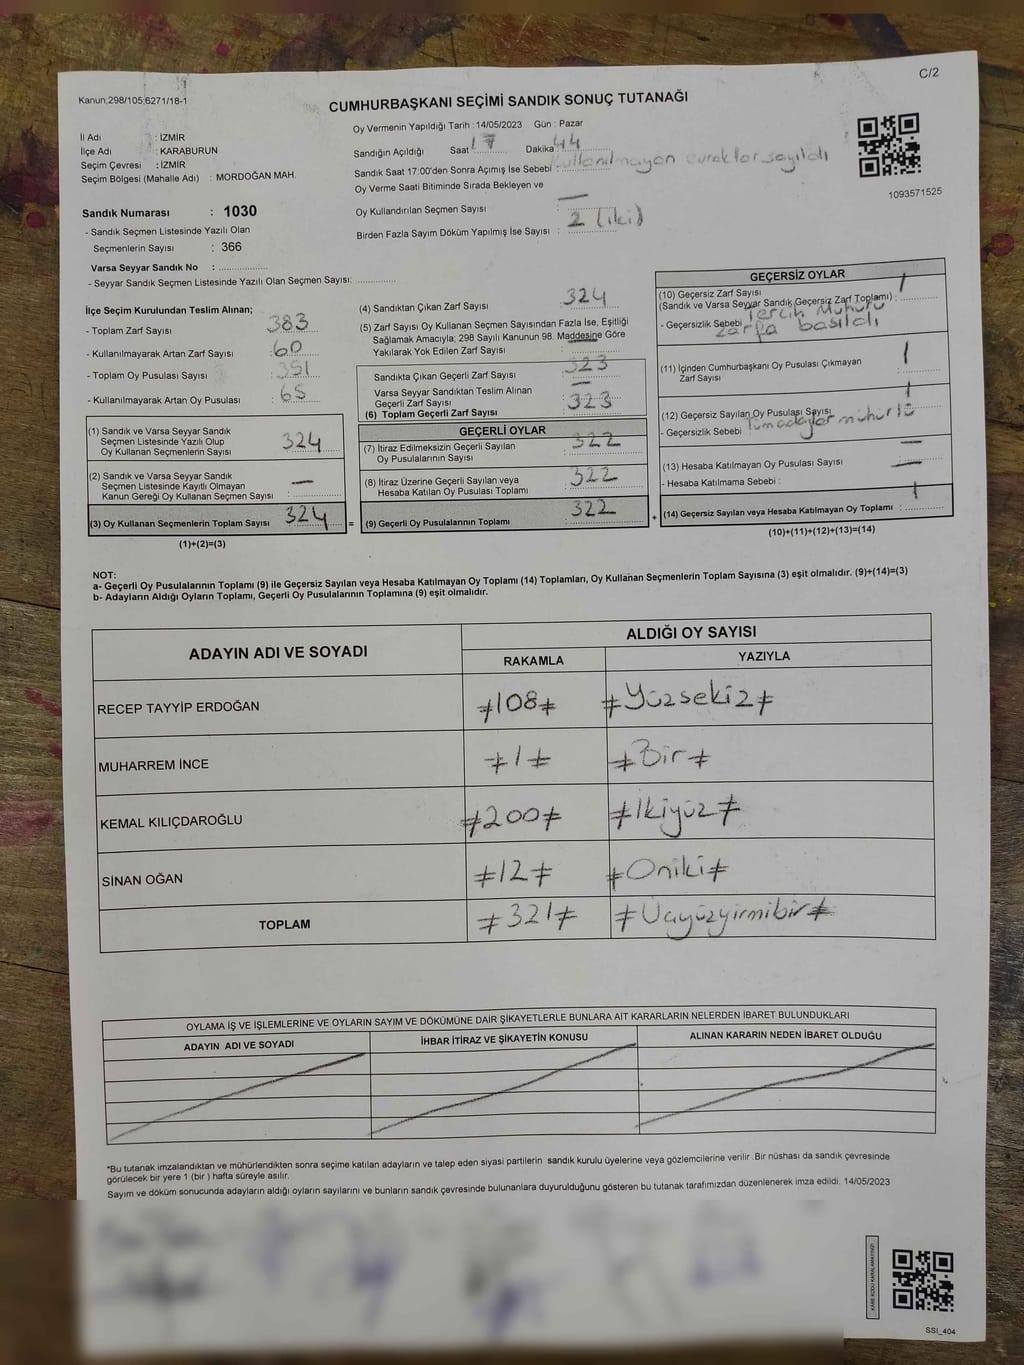 C/2
Kanun;298/105;6271/18-1
CUMHURBAŞKANI SEÇİMİ SANDIK SONUÇ TUTANAĞI
İl Adı : İZMİR
İlçe Adı : KARABURUN
Seçim Çevresi : İZMİR
Seçim Bölgesi (Mahalle Adı) : MORDOĞAN MAH.
Oy Vermenin Yapıldığı Tarih : 14/05/2023 Gün : Pazar
Sandığın Açıldığı Saat 17 Dakika 44
Sandık Saat 17:00'den Sonra Açımış İse Sebebi : Kullanılmayan evraklar sayıldı
Oy Verme Saati Bitiminde Sırada Bekleyen ve
Oy Kullandırılan Seçmen Sayısı : —
Birden Fazla Sayım Döküm Yapılmış İse Sayısı : 2 (iki)
1093571525
Sandık Numarası : 1030
- Sandık Seçmen Listesinde Yazılı Olan
Seçmenlerin Sayısı : 366
Varsa Seyyar Sandık No :
- Seyyar Sandık Seçmen Listesinde Yazılı Olan Seçmen Sayısı:
İlçe Seçim Kurulundan Teslim Alınan;
- Toplam Zarf Sayısı : 383
- Kullanılmayarak Artan Zarf Sayısı : 60
- Toplam Oy Pusulası Sayısı : 391
- Kullanılmayarak Artan Oy Pusulası : 65
(1) Sandık ve Varsa Seyyar Sandık
Seçmen Listesinde Yazılı Olup
Oy Kullanan Seçmenlerin Sayısı : 324
(2) Sandık ve Varsa Seyyar Sandık
Seçmen Listesinde Kayıtlı Olmayan
Kanun Gereği Oy Kullanan Seçmen Sayısı : —
(3) Oy Kullanan Seçmenlerin Toplam Sayısı : 324
(1)+(2)=(3)
(4) Sandıktan Çıkan Zarf Sayısı : 324
(5) Zarf Sayısı Oy Kullanan Seçmen Sayısından Fazla İse, Eşitliği
Sağlamak Amacıyla; 298 Sayılı Kanunun 98. Maddesine Göre
Yakılarak Yok Edilen Zarf Sayısı : —
Sandıkta Çıkan Geçerli Zarf Sayısı : 323
Varsa Seyyar Sandıktan Teslim Alınan
Geçerli Zarf Sayısı : —
(6) Toplam Geçerli Zarf Sayısı : 323
GEÇERLİ OYLAR
(7) İtiraz Edilmeksizin Geçerli Sayılan
Oy Pusulalarının Sayısı : 322
(8) İtiraz Üzerine Geçerli Sayılan veya
Hesaba Katılan Oy Pusulası Toplamı : 322
= (9) Geçerli Oy Pusulalarının Toplamı : 322
GEÇERSİZ OYLAR
(10) Geçersiz Zarf Sayısı
(Sandık ve Varsa Seyyar Sandık Geçersiz Zarf Toplamı) : 1
- Geçersizlik Sebebi : Tercih Mührü
zarfa basıldı
(11) İçinden Cumhurbaşkanı Oy Pusulası Çıkmayan
Zarf Sayısı : 1
(12) Geçersiz Sayılan Oy Pusulası Sayısı : 1
- Geçersizlik Sebebi : Tüm adaylar mühürlü
(13) Hesaba Katılmayan Oy Pusulası Sayısı : —
- Hesaba Katılmama Sebebi : —
+ (14) Geçersiz Sayılan veya Hesaba Katılmayan Oy Toplamı : 1
(10)+(11)+(12)+(13)=(14)
NOT:
a- Geçerli Oy Pusulalarının Toplamı (9) ile Geçersiz Sayılan veya Hesaba Katılmayan Oy Toplamı (14) Toplamları, Oy Kullanan Seçmenlerin Toplam Sayısına (3) eşit olmalıdır. (9)+(14)=(3)
b- Adayların Aldığı Oyların Toplamı, Geçerli Oy Pusulalarının Toplamına (9) eşit olmalıdır.
ADAYIN ADI VE SOYADI
ALDIĞI OY SAYISI
RAKAMLA YAZIYLA
RECEP TAYYİP ERDOĞAN ≠108≠ ≠Yüzsekiz≠
MUHARREM İNCE ≠1≠ ≠Bir≠
KEMAL KILIÇDAROĞLU ≠200≠ ≠İkiyüz≠
SİNAN OĞAN ≠12≠ ≠Oniki≠
TOPLAM ≠321≠ ≠Üçyüzyirmibir≠
OYLAMA İŞ VE İŞLEMLERİNE VE OYLARIN SAYIM VE DÖKÜMÜNE DAİR ŞİKAYETLERLE BUNLARA AİT KARARLARIN NELERDEN İBARET BULUNDUKLARI
ADAYIN ADI VE SOYADI İHBAR İTİRAZ VE ŞİKAYETİN KONUSU ALINAN KARARIN NEDEN İBARET OLDUĞU
*Bu tutanak imzalandıktan ve mühürlendikten sonra seçime katılan adayların ve talep eden siyasi partilerin sandık kurulu üyelerine veya gözlemcilerine verilir .Bir nüshası da sandık çevresinde
görülecek bir yere 1 (bir ) hafta süreyle asılır.
Sayım ve döküm sonucunda adayların aldığı oyların sayılarını ve bunların sandık çevresinde bulunanlara duyurulduğunu gösteren bu tutanak tarafımızdan düzenlenerek imza edildi. 14/05/2023
KARE KODU KARALAMAYINIZ!
SSI_404